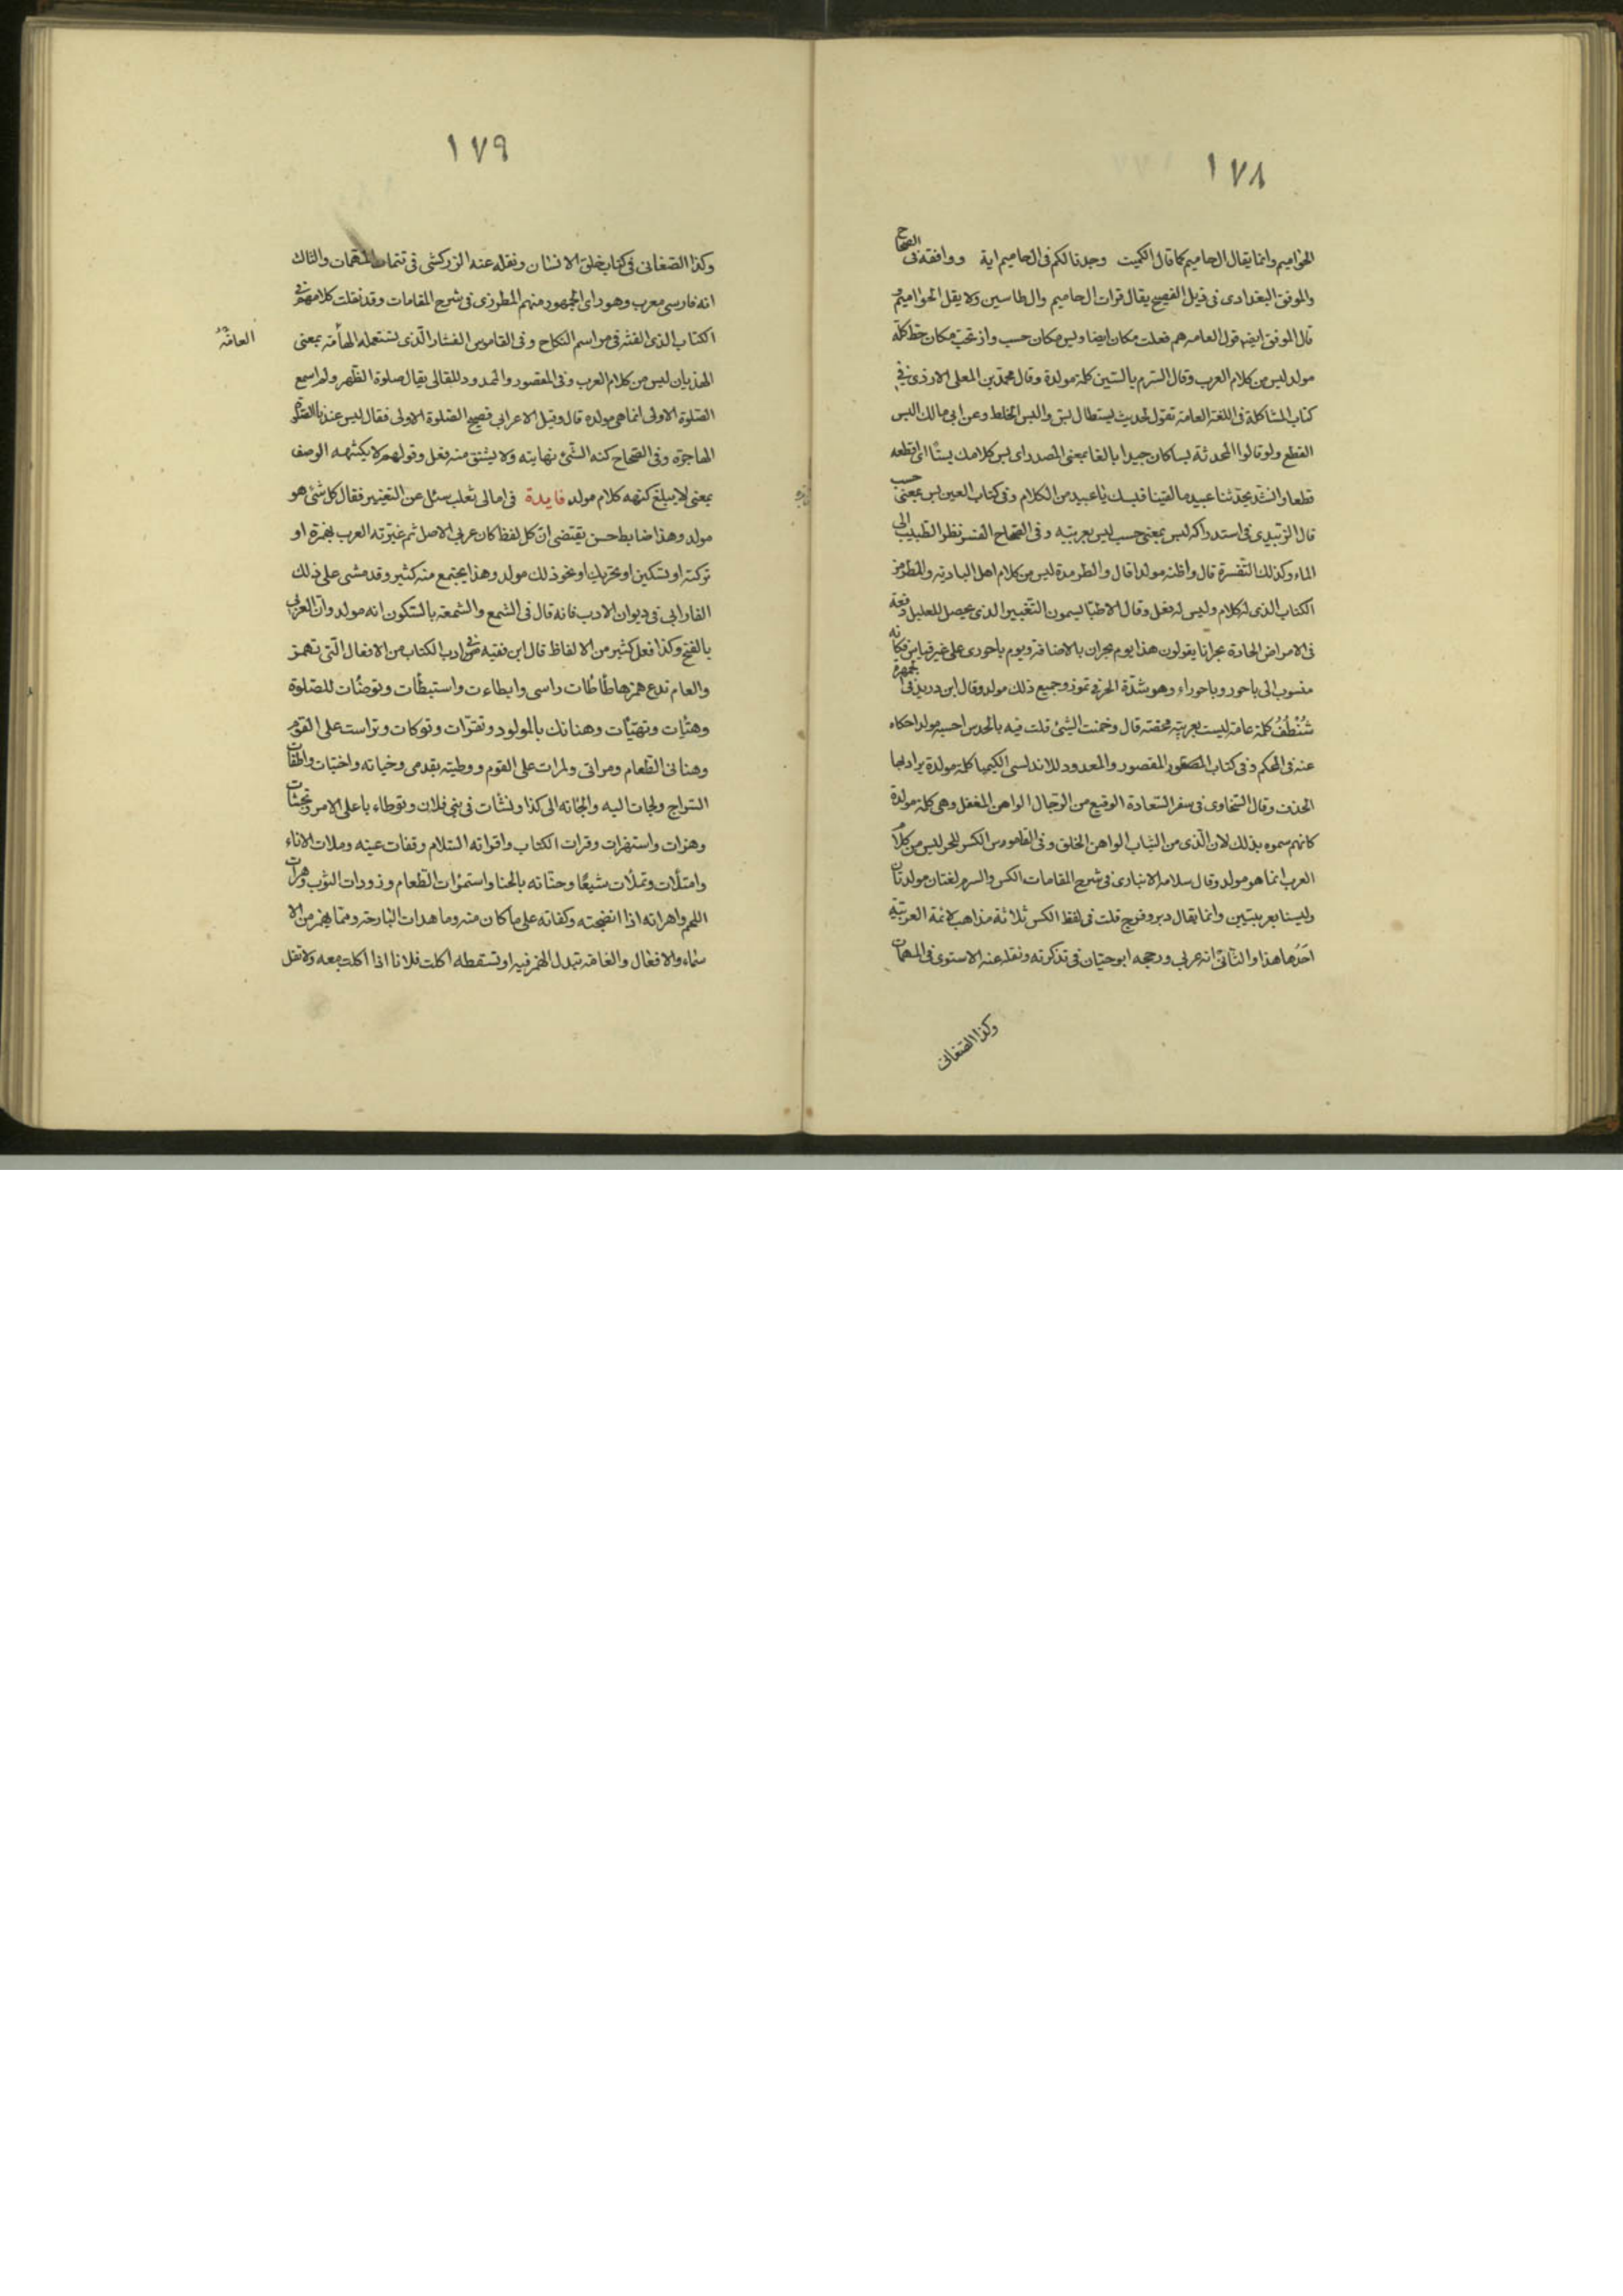 ١٧٨
الحواميم وانما يقال ال حاميم كما قال الكميت وجدنا لكم فى ال حاميم اية ووافقه فى الصحاح
والموفق البغدادى فى ذيل الفصيح يقال قرات ال حاميم وال طاسين ولا يقل الحواميم
قال الموفق ايضا قول العامه هم فعلت مكان ايضا وبس مكان حسب وله بخت مكان حظ كله
مولد ليس من كلام العرب وقال السرم بالسين كلمة مولدة وقال محمد بن المعلى الازدى فى
كتاب المشاكلة فى اللغة العامة تقول لحديث يستطال بس والبس الخلط وعن ابى مالك البس
القطع ولو قالوا المحدثة بسا كان جيدا بالغا بمعنى المصدر اى بس كلامك بسًا اى اقطعه
قطعا وانشد يحدثنا عبيد ما لقينا فبسك يا عبيد من الكلام وفى كتاب العين بس بمعنى حسب
قال الزبيدى فى استدراكه بس بمعنى حسب ليس بعربية وفى الصحاح الفسر نظر الطبيب الى
الماء وكذلك التفسرة قال واظنه مولدا قال والطرمذة ليس من كلام اهل البادية والمطرمذ
الكتاب الذى له كلام وليس له فعل وقال الاطبا يسمون التغيير الذى يحصل للعليل دفعة
فى الامراض الحادة بحرانا يقولون هذا يوم بحران بالاضافة ويوم باحورى على غير قياس فكانه
منسوب الى باحور وباحوراء وهو شدّة الحر فى تموز وجميع ذلك مولد وقال ابن دريد فى الجمهرة
شُنْطُفُ كلمة عامة ليست بعربية محضة قال وخمنت الشئ قلت فيه بالحدس احسبه مولدا حكاه
عنه فى المحكم وفى كتاب المقصور والممدود للاندلسى الكيميا كلمة مولدة يراد بها
الحذف وقال السخاوى فى سفر السعادة الرقيع من الرجال الواهن المغفل وهى كلمة مولدة
كانهم سموه بذلك لان الذى من الثياب الواهن الخلق وفى القاموس الكس للحر ليس من كلام
العرب انما هو مولد وقال سلامه الانبارى فى شرح المقامات الكس والسرم لغتان مولدتان
وليسنا بعربيتين وانما يقال دبر وفرج قلت فى لفظ الكس ثلاثة مذاهب لائمة العربيّة
اَحَدُها هذا والثانى انه عربى ورجحه ابو حيّان فى تذكرته ونقله عنه الاسنوى فى المهمات
وكذا الصغانى
١٧٩
وكذا الصّغانى فى كتاب خلق الانسان ونقله عنه الزركشى فى تتمات المهمات والثالث
انه فارسى معرب وهو راى الجمهور منهم المطرزى فى شرح المقامات وقد نقلت كلامهم فى
الكتاب الذى الفته فى مراسم النكاح وفى القاموس الفشار الّذى تستعمله العامة بمعنى
العامّة
الهذيان ليس من كلام العرب وفى المقصور والممدود للقالى يقال صلوة الظهر ولم اسمع
الصّلوة الاولى انما هى مولده قال وقيل لاعرابى فصيح الصّلوة الاولى فقال ليس عندنا الا صلوة
الهاجرة وفى الصحاح كنه الشئ نهايته ولا يشتق منه فعل وقولهم لا يكتنهه الوصف
بمعنى لا يبلغ كنهه كلام مولد فايدة فى امالى ثعلب سئل عن التغيير فقال كل شئ هو
مولد وهذا ضابط حسن يقتضى انّ كل لفظ كان عربى الاصل ثم غيّرته العرب بهمزة او
تركه او تسكين او تحريك او نحو ذلك مولد وهذا يجتمع منه كثير وقد مشى على ذلك
الفارابى فى ديوان الادب فانه قال فى الشمع والشمعة بالسكون انه مولد وان العربى
بالفتح وكذا فعل كثير من الالفاظ قال ابن قتيبه فى ادب الكتاب من الافعال التى تهمز
والعام تدع همزها طأطأت راسى وابطاءت واستبطأت وتوضّأت للصّلوة
وهيّات وتهيّات وهنانك بالمولود وتقرّات وتوكات وتراست على القوم
وهنانى الطعام ومرانى ولمرات على القوم ووطيته بقدمى وخباته واختبات واطفات
السّراج ولجات اليه والجاته الى كذا ونشأت فى بنى فلان وتوطاء باعلى الامر وتجشات
وهزات واستهزات وقرات الكتاب واقراته السّلام وفقات عينه وملات الاناء
وامتلات وتملّات شبعًا وحنّاته بالحنا واستمرات الطعام وزورات الثوب وهرات
اللحم واهراته اذا انضجته وكفاته على ما كان منه وما هدات البارحة ومما يهمز من الا
سماء والافعال والعامة تبدل الهمز فيه او تسقطه اكلت فلانا اذا اكلت معه ولا تقل